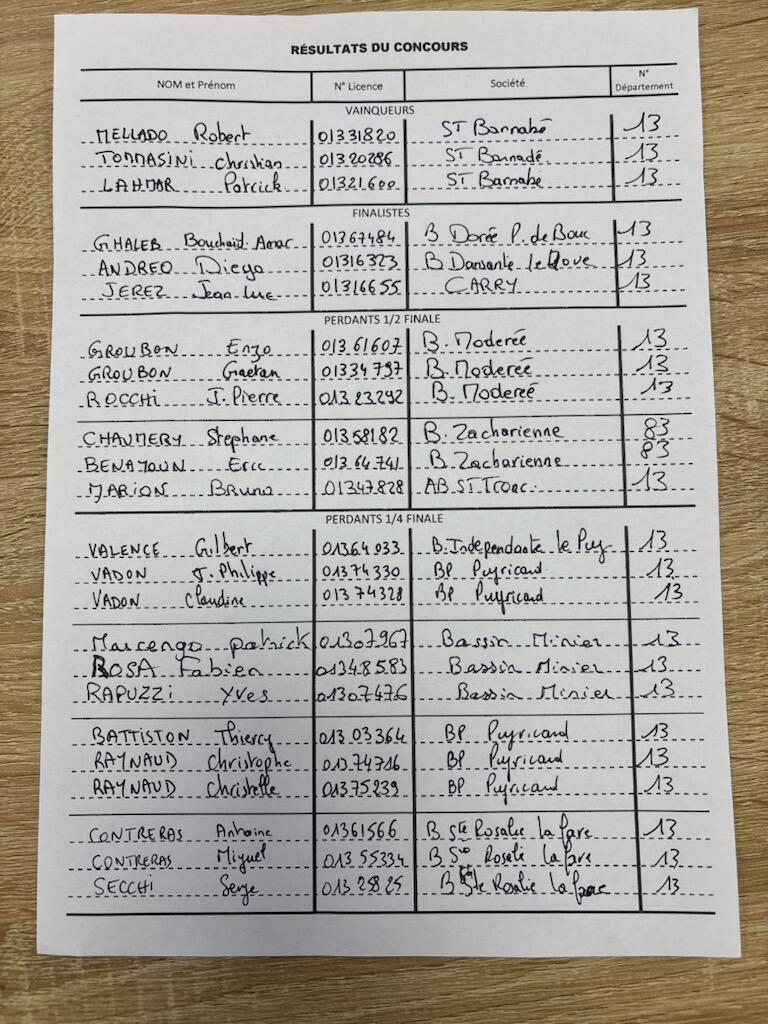 RÉSULTATS DU CONCOURS
NOM et Prénom N° Licence Société N° Département
VAINQUEURS
MELLADO Robert 01331820 ST Barnabé 13
TOMMASINI Christian 01320286 ST Barnadé 13
LAHMAR Patrick 01321600 ST Barnabé 13
FINALISTES
GHALEB Bouchaid Amar 01367484 B Dorée P. de Bouc 13
ANDREO Diego 01316323 B Dansante le Rove 13
JEREZ Jean Luc 01316655 CARRY 13
PERDANTS 1/2 FINALE
GROUBON Enzo 01361607 B. Moderée 13
GROUBON Gaetan 01334797 B. Moderée 13
ROCCHI J. Pierre 01323292 B. Moderée 13
CHAUMERY Stephane 01358182 B. Zacharienne 83
BENAMOUN Eric 01364741 B. Zacharienne 83
MARION Bruno 01347828 AB ST Tronc. 13
PERDANTS 1/4 FINALE
VALENCE Gilbert 01364033 B. Independante le Puy 13
VADON J. Philippe 01374330 BP Puyricard 13
VADON Claudine 01374328 BP Puyricard 13
Marcengo patrick 01307967 Bassin Minier 13
ROSA Fabien 01348583 Bassin Minier 13
RAPUZZI Yves 01307476 Bassin Minier 13
BATTISTON Thierry 01303364 BP Puyricard 13
RAYNAUD Christophe 01374716 BP Puyricard 13
RAYNAUD Christelle 01375239 BP Puyricard 13
CONTRERAS Antoine 01361566 B Ste Rosalie la fare 13
CONTRERAS Miguel 01355334 B Ste Rosalie la fare 13
SECCHI Serge 01325825 B Ste Rosalie la fare 13